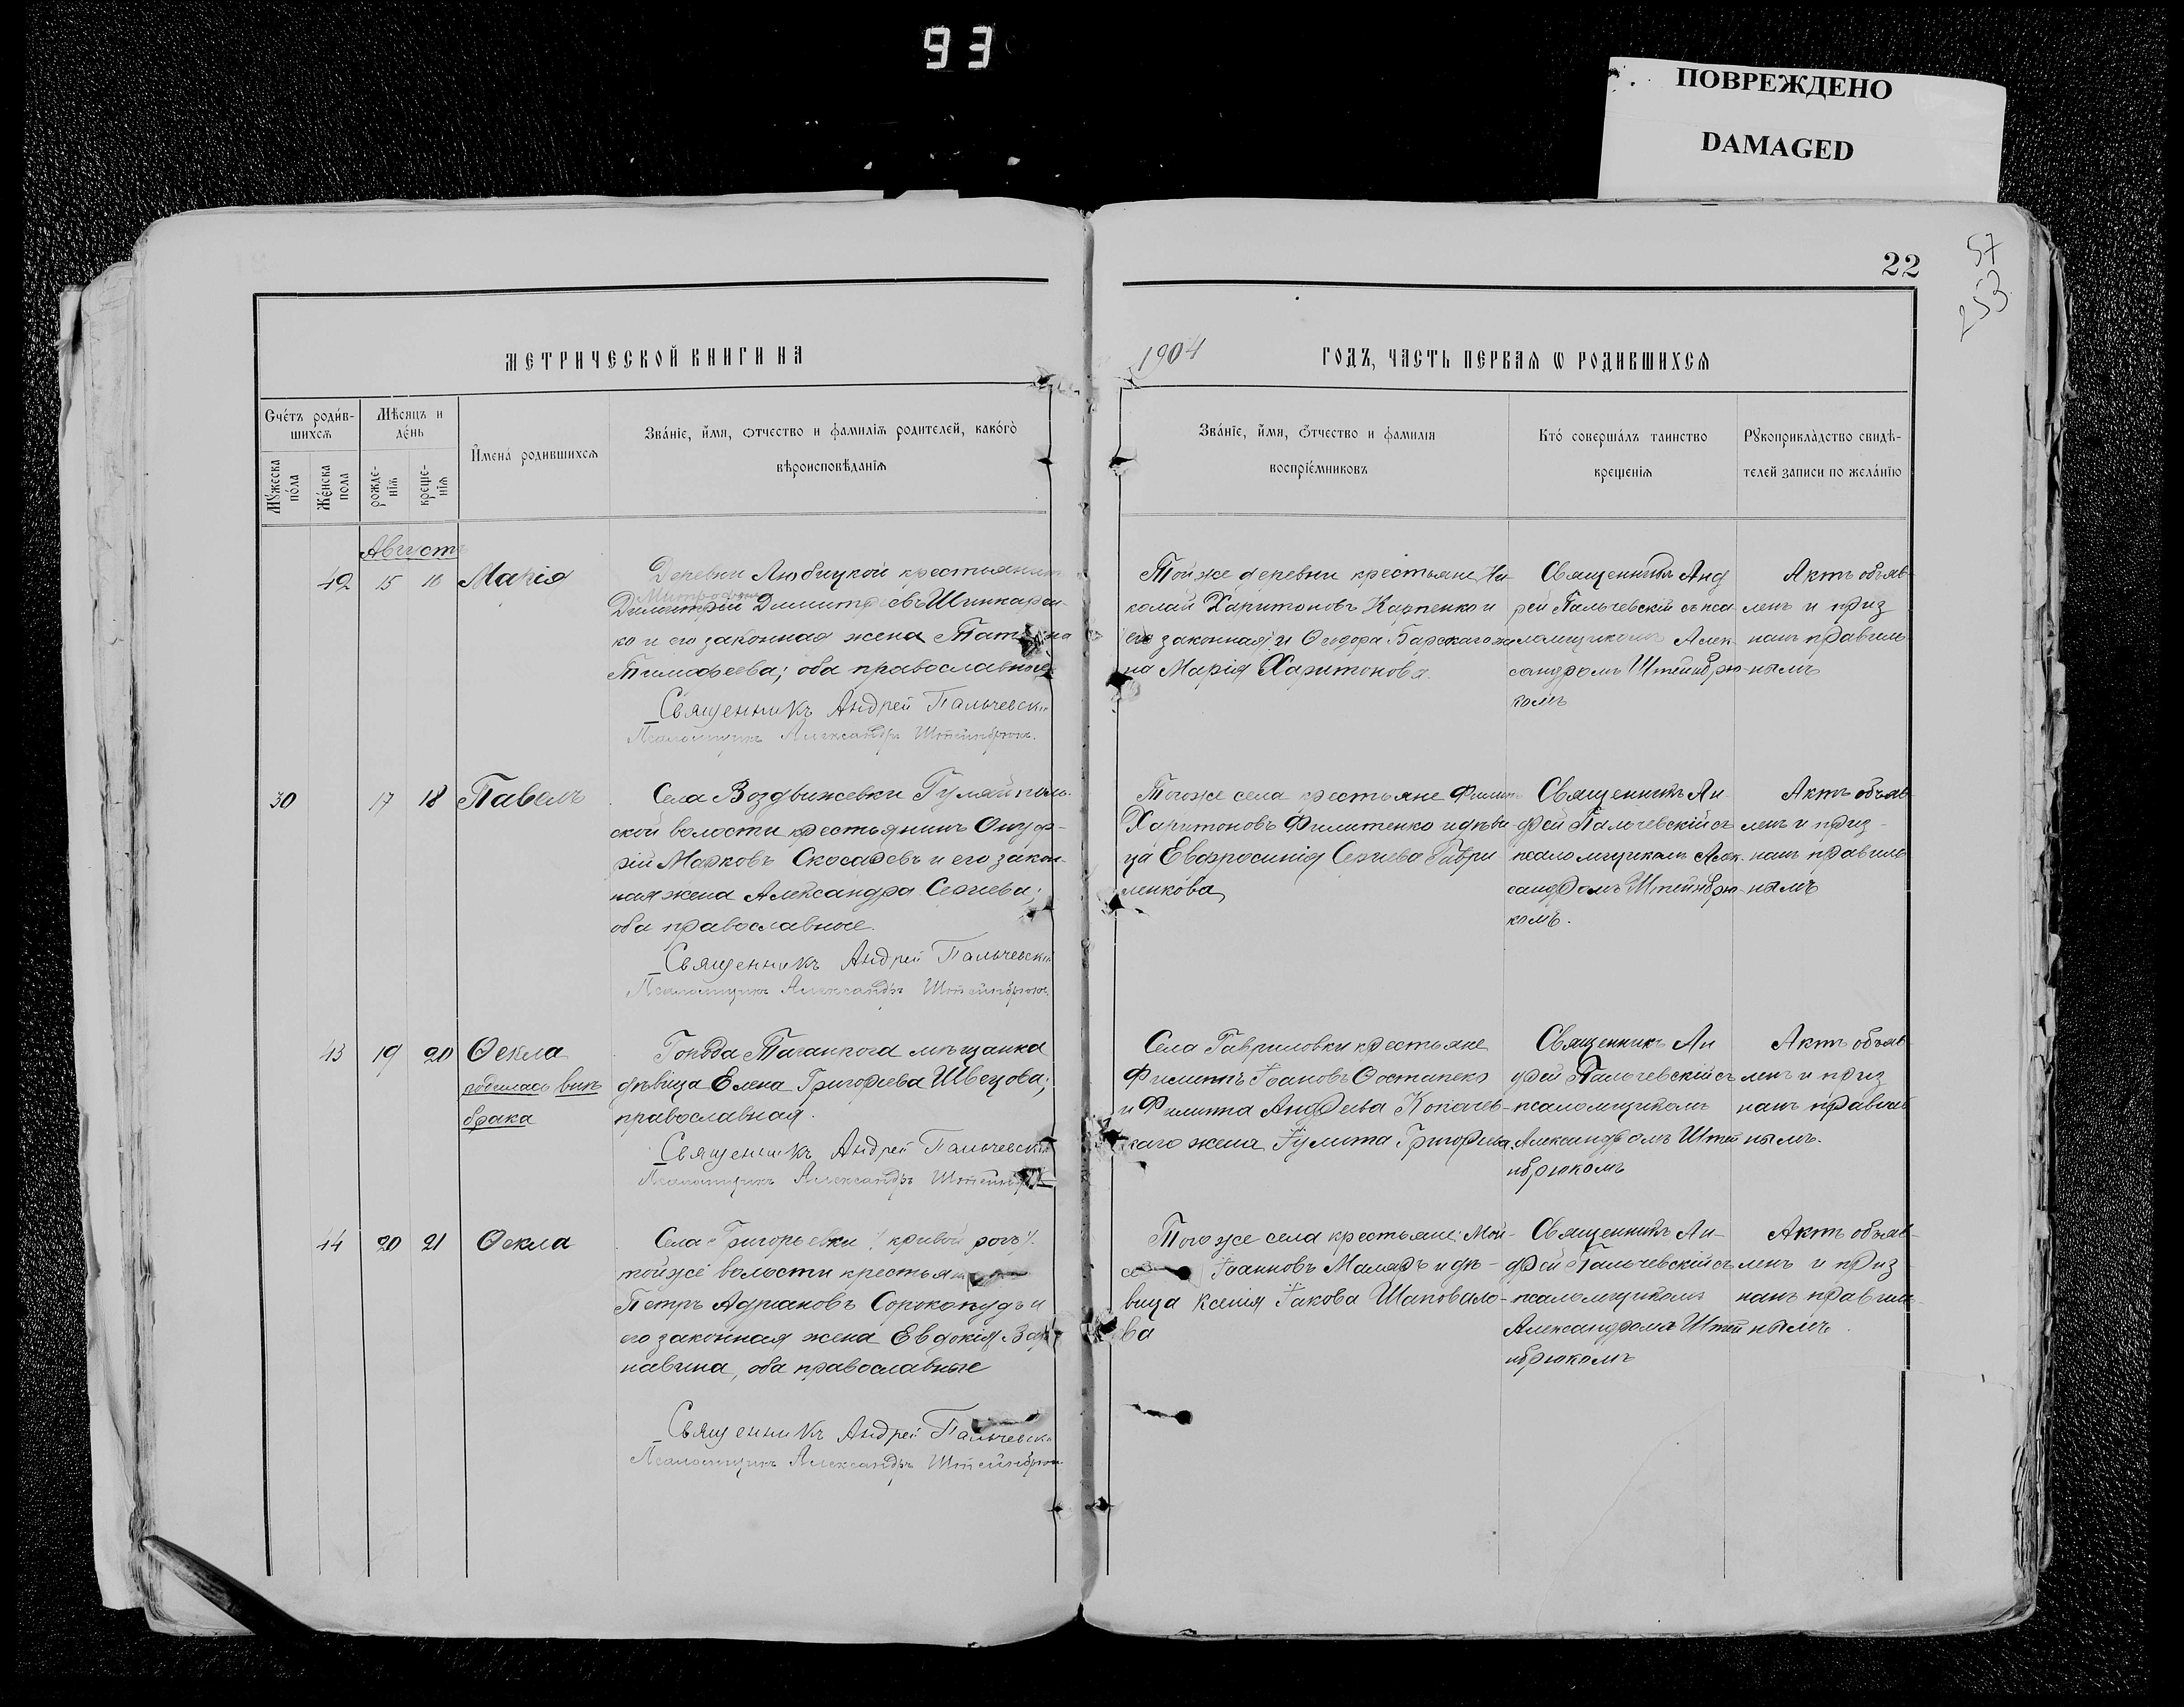 93
ПОВРЕЖДЕНО
DAMAGED
22
57
253
МЕТРИЧЕСКОЙ КНИГИ НА
1904
ГОДЪ, ЧАСТЬ ПЕРВАЯ Ѡ РОДИВШИХСЯ
Счéтъ роди́в-
шихсѧ
Мѣсяцъ и
де́нь
И҆мена́ родившихсѧ
Зва́нїе, и҆́мѧ, ѻтчество и фамилїѧ родителей, како́гѡ
вѣроисповѣданїѧ
Мꙋ́жеска
по́ла
Же́нска
пола
рожде-
нїѧ
креще-
нїѧ
Зва́нїе, и҆́мѧ, ѻтчество и фамилїя
воспрїе́мниковъ
Кто́ соверша́лъ таинство
крещенїѧ
Рꙋкоприкла́дство свидѣ-
телей записи по жела́нїю
Августъ
42 15 16 Марія
Деревни Любицкой крестьянинъ
Митрофанъ
Димитрій Димитріевъ Шинкарен-
ко и его законная жена Татіана
Тимофеева; оба православные
Священникъ Андрей Пальчевскій
Псаломщикъ Александръ Штейнбрюкъ.
Той же деревни крестьяне Ни-
колай Харитоновъ Карпенко и
его законная и Ѳеодора Барскаго же
на Марія Харитонова.
Священникъ Анд
рей Пальчевскій съ пса
ломщикомъ Алек-
сандромъ Штейнбрю-
комъ
Актъ объяв-
ленъ и приз
нанъ правиль
нымъ
30 17 18 Павелъ
Села Воздвижевки Гуляйполь-
ской волости крестьянинъ Онуф-
рій Марковъ Скосаревъ и его закон-
ная жена Александра Сергіева;
оба православные.
Священникъ Андрей Пальчевскій
Псаломщикъ Александръ Штейнбрюкъ.
Того же села крестьяне Филиппъ
Харитоновъ Филипенко и дѣви
ца Евфросинія Сергіева Гаври
ленкова
Священникъ Ан
дрей Пальчевскій съ
псаломщикомъ Алек-
сандромъ Штейнбрю-
комъ.
Актъ объяв
ленъ и приз-
нанъ правиль
нымъ
43 19 20 Ѳекла
родилась внѣ
брака
Города Таганрога мѣщанка
дѣвица Елена Григорьева Швецова;
православная.
Священникъ Андрей Пальчевскій
Псаломщикъ Александръ Штейнбрюкъ
Села Гавриловки крестьяне
Филиппъ Іоановъ Остапенко
и Филиппа Андреева
жена Іулита Григорьева.
Священникъ Ан
дрей Пальчевскій съ
псаломщикомъ
Александромъ Штей
нбрюкомъ
Актъ объяв
ленъ и приз
нанъ правиль
нымъ.
44 20 21 Ѳекла
Села Григорьевки / кривой рогъ /
тойже волости крестьянинъ
Петръ Адріановъ Сорокопудъ и
его законная жена Евдокія Вар
навина, оба православные
Священникъ Андрей Пальчевскій
Псаломщикъ Александръ Штейнбрюкъ
Того же села крестьяне: Мои-
сей Іоанновъ Малярь и дѣ-
вица Ксенія Іакова Шаповало-
ва
Священникъ Ан-
дрей Пальчевскій съ
псаломщикомъ
Александромъ Штей
нбрюкомъ
Актъ объяв-
ленъ и приз
нанъ правиль
нымъ.